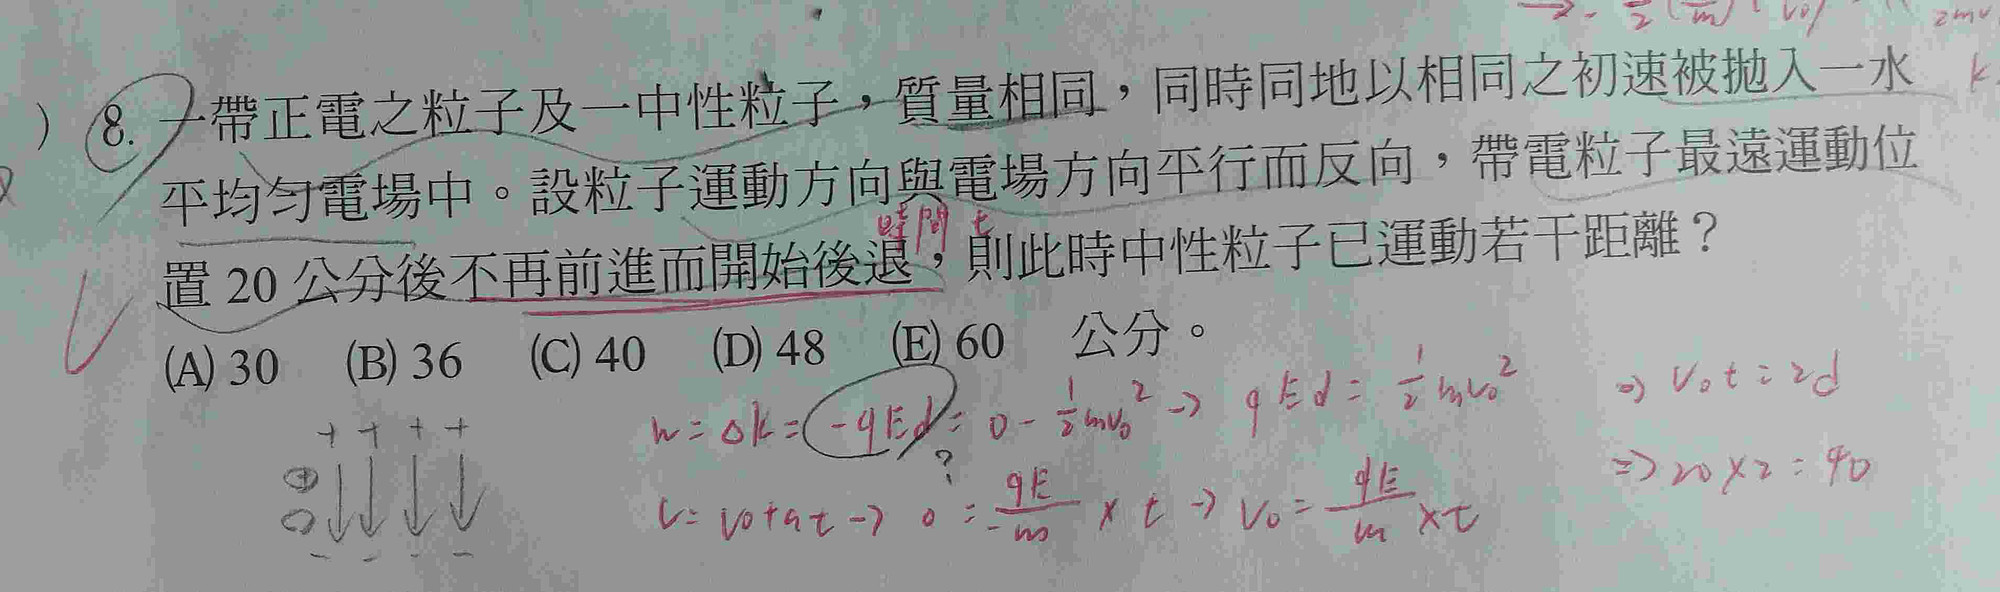 8. 一帶正電之粒子及一中性粒子，質量相同，同時同地以相同之初速被拋入一水
平均勻電場中。設粒子運動方向與電場方向平行而反向，帶電粒子最遠運動位
時間 t
置 20 公分後不再前進而開始後退，則此時中性粒子已運動若干距離？
(A) 30 (B) 36 (C) 40 (D) 48 (E) 60 公分。
W = ΔK = -qEd = 0 - ½mv₀² → qEd = ½mv₀²
?
⇒ v₀t = 2d
+ + + +
V = V0 + at → 0 = - qE/m × t → V₀ = qE/m × t
⇒ 20 × 2 = 40
- - - -